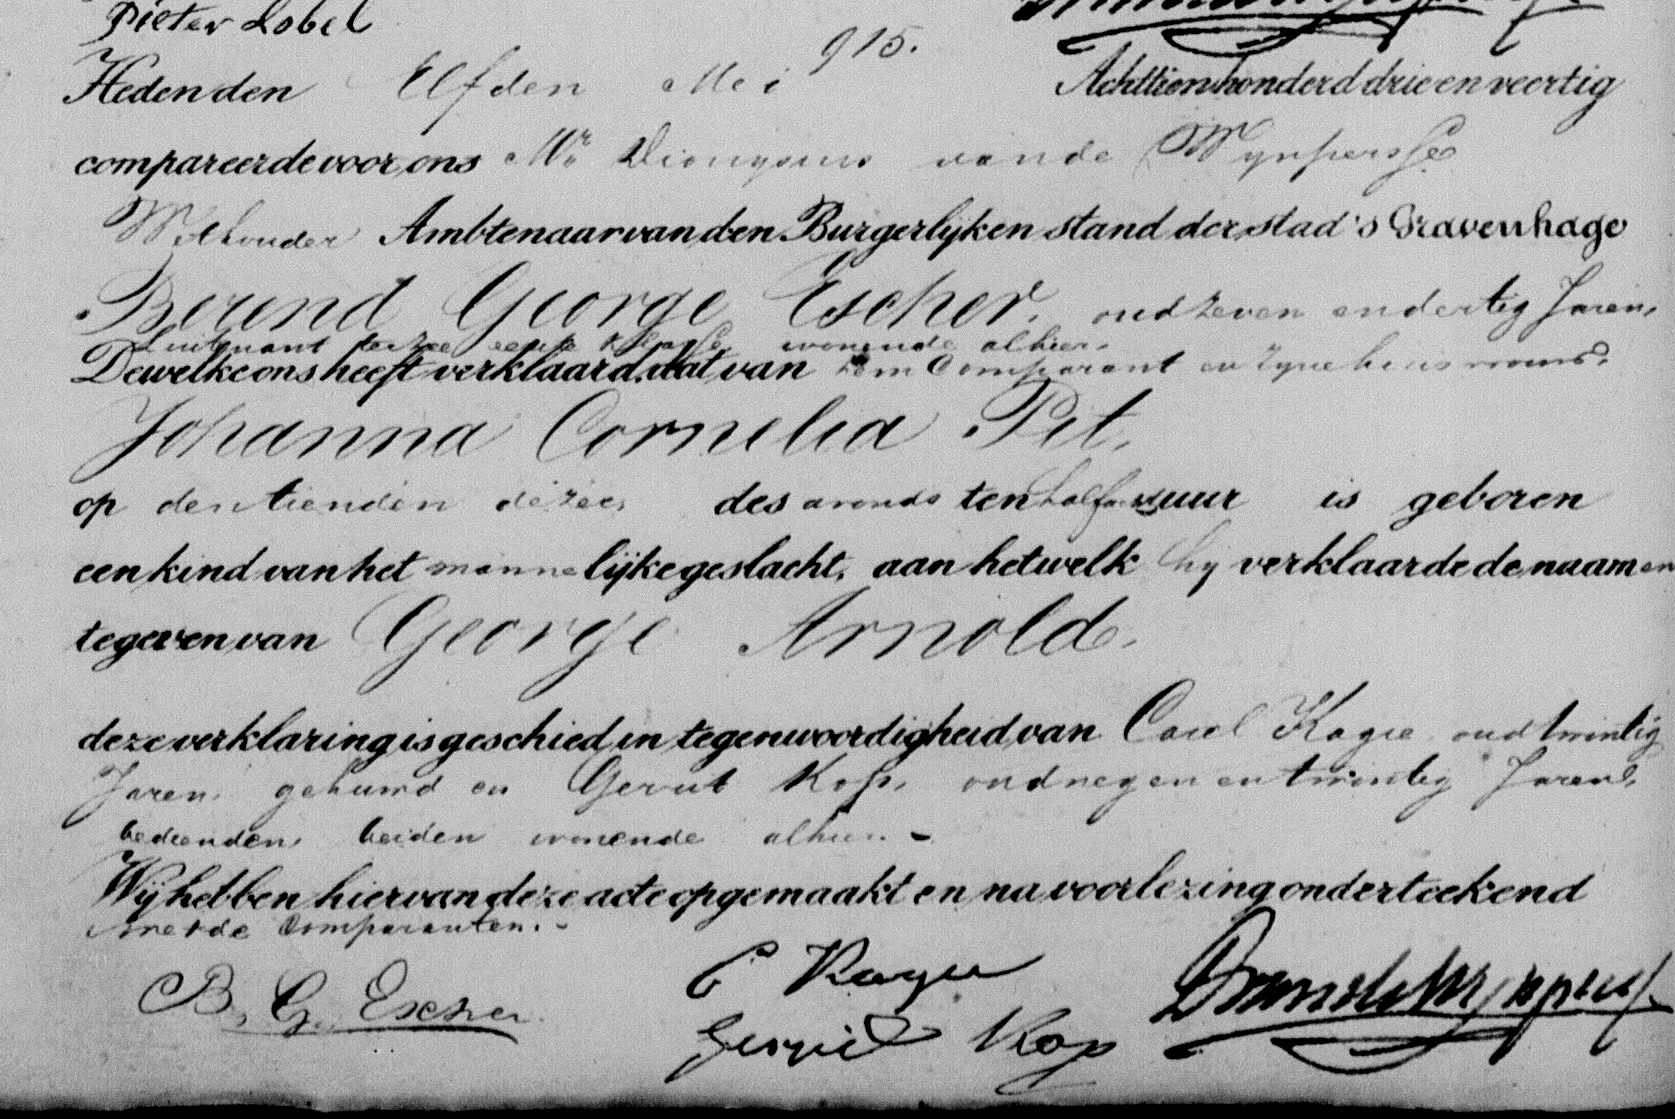 Pieter Lobel
915.
Heden den Elfden Mei Achttienhonderd drie en veertig
compareerde voor ons Mr Dionysius van de Wynpersse
Wethouder Ambtenaar van den Burgerlijken stand der stad 's Gravenhage
Berend George Escher. oud zeven en dertig Jaren,
Luitenant ter zee eerste klasse, wonende alhier.
Dewelke ons heeft verklaard, dat van hem Comparant en zyne huisvrouw
Johanna Cornelia Pit,
op den tienden dezes des avonds ten half uur is geboren
een kind van het mannelijke geslacht, aan hetwelk hy verklaarde de naamen
te geven van George Arnold.
deze verklaring is geschied in tegenwoordigheid van Carel Kagie oud twintig
Jaren, gehuwd en Gerrit Kop, oud negen en twintig Jaren,
bedienden, beiden wonende alhier. -
Wij hebben hiervan deze acte opgemaakt en na voorlezing onderteekend
met de Comparanten. -
B. G. Escher
C Kagie
Gerrit Kop